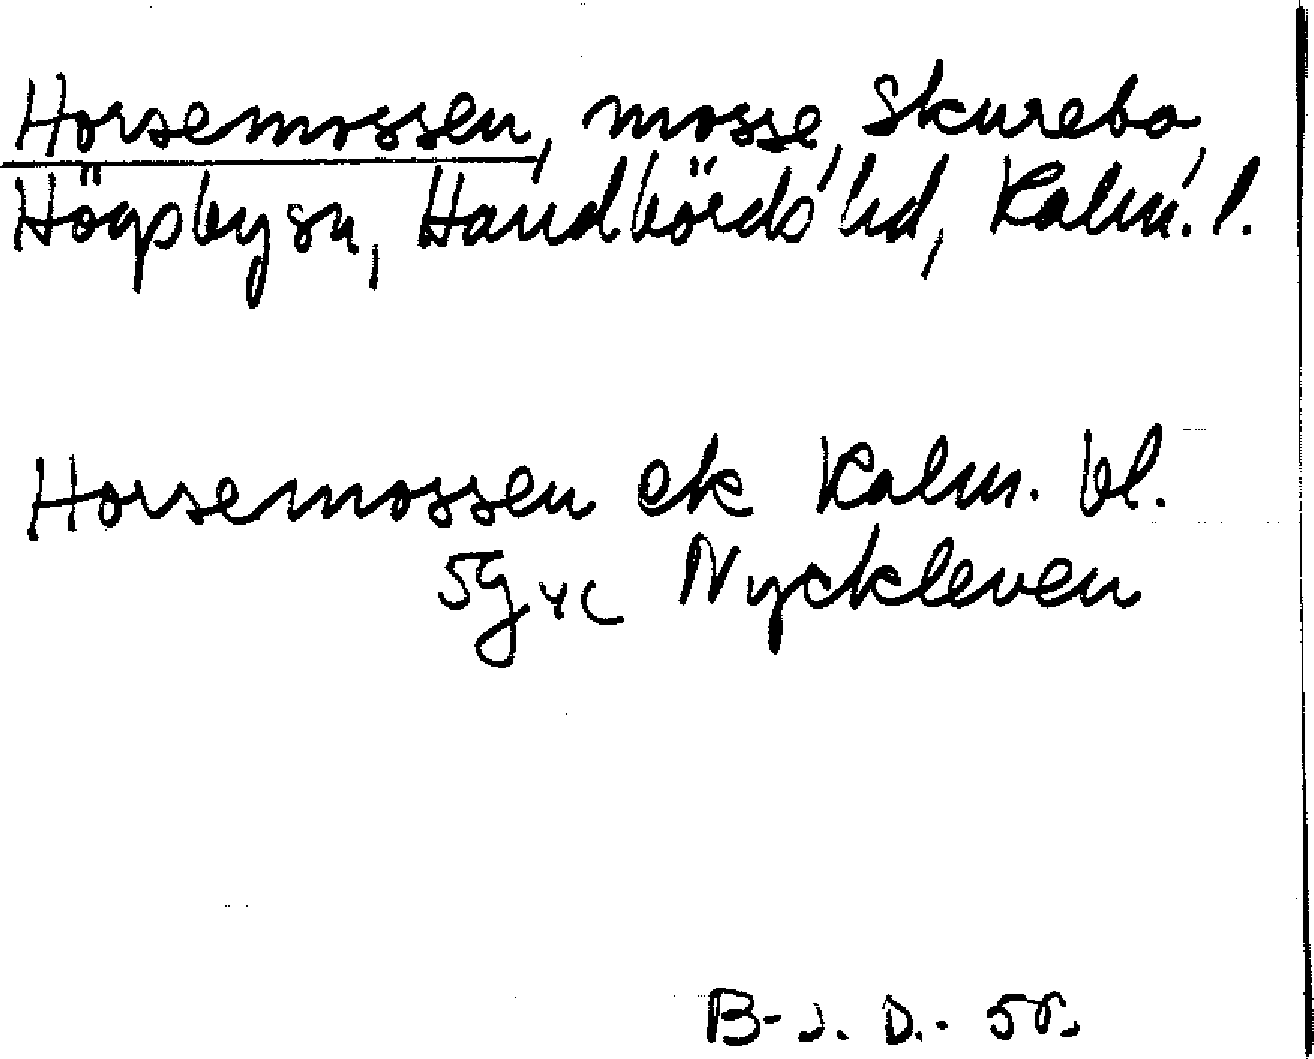 Horsemossen, mosse, Skurebo,
Högsby sn, Handbörds hd, Kalm. l.
Horsemossen ek Kalm. bl.
5g Nyckleven
B-J. D.-